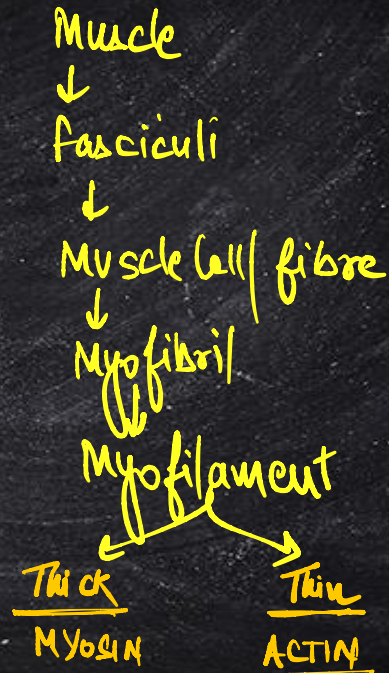 Muscle
↓
fasciculi
↓
Muscle Cell/ fibre
↓
Myofibril
↓
Myofilament
Thick Thin
MYOSIN ACTIN